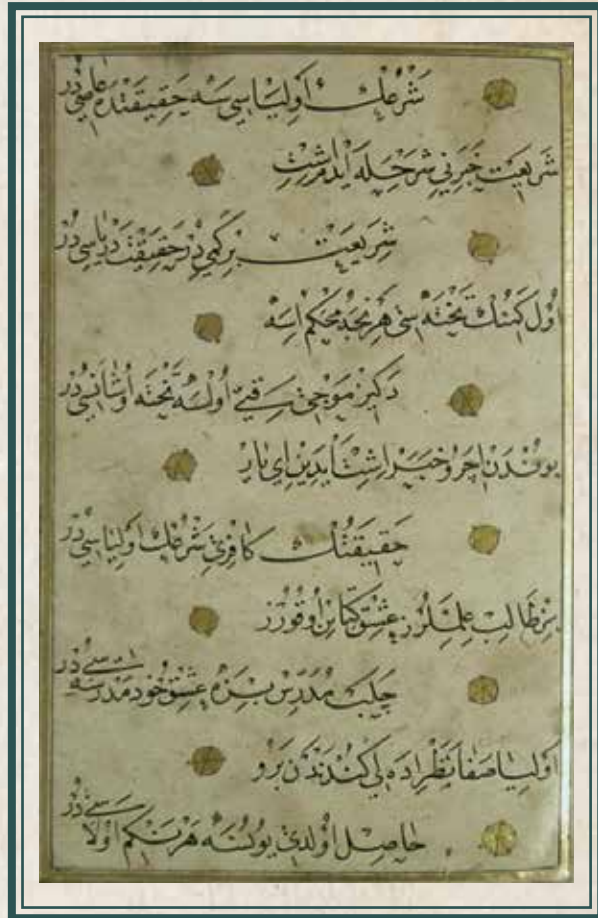 شرعك اولياسى سه حقيقتده عاصى در
شريعت خبرنى شرحله ايدم اشت
شريعت بر كمى در حقيقت درياسى در
اول كمنك تخته سى هر نجه محكم اسه
دكيز موجى قتى اولسه تخته اوشانسى در
بوندن اجرو خبر اشت ايدين اى يار
حقيقتك كافرى شرعك اولياسى در
بز طالب علملرز عشق كتابن اوقورز
چلب مدرس بزه عشق خود مدرسه سى در
اوليا صفا نظر ايده لى كندندن برو
حاصل اولدى يونسه هر نكم اولاسى در